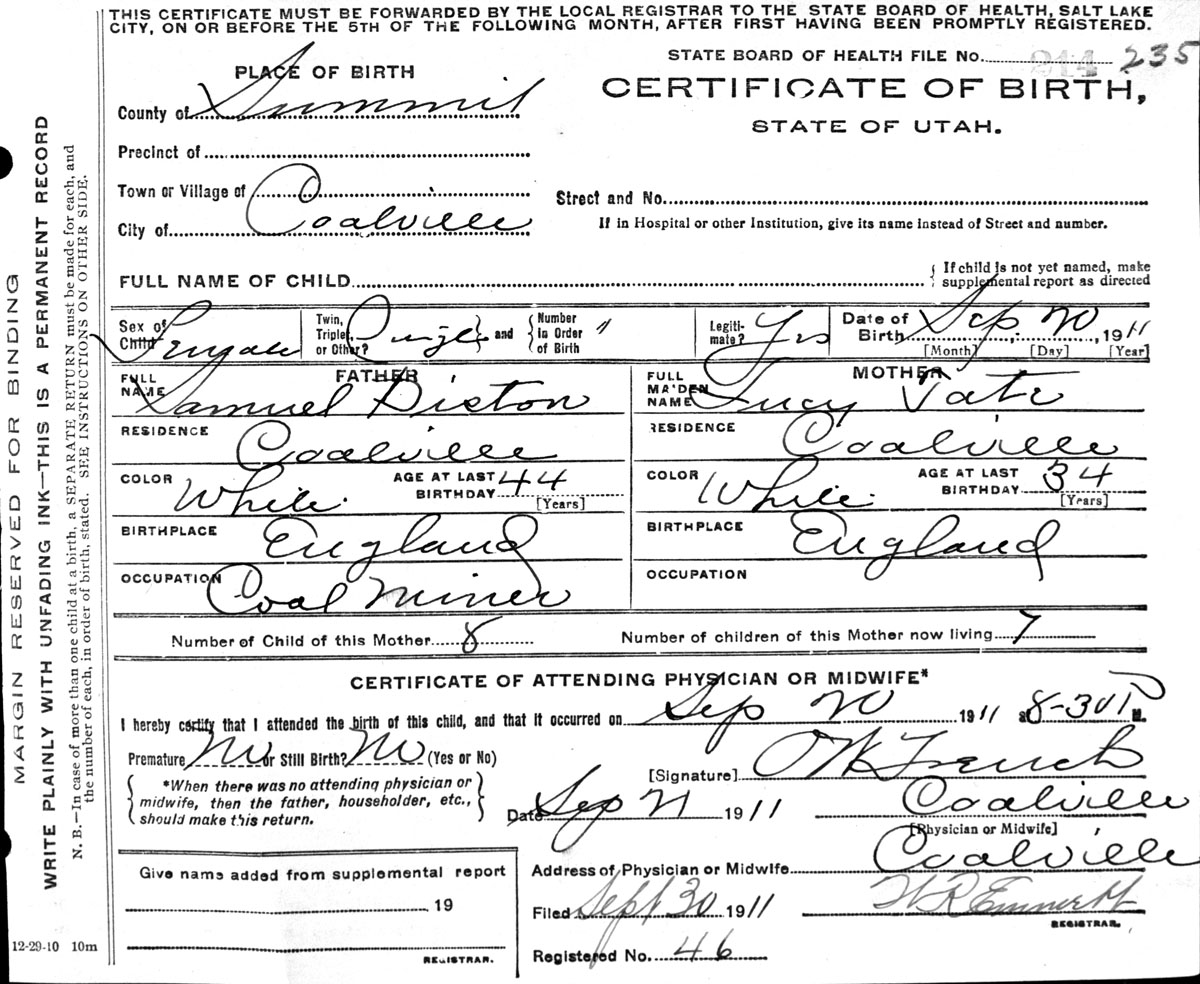 THIS CERTIFICATE MUST BE FORWARDED BY THE LOCAL REGISTRAR TO THE STATE BOARD OF HEALTH, SALT LAKE
CITY, ON OR BEFORE THE 5TH OF THE FOLLOWING MONTH, AFTER FIRST HAVING BEEN PROMPTLY REGISTERED.
STATE BOARD OF HEALTH FILE No. 914 235
PLACE OF BIRTH
CERTIFICATE OF BIRTH,
STATE OF UTAH.
County of Summit
Precinct of
Town or Village of
City of Coalville
Street and No.
If in Hospital or other Institution, give its name instead of Street and number.
FULL NAME OF CHILD
If child is not yet named, make
supplemental report as directed
Sex of Child Female
Twin, Triplet, or Other? Single and
Number in Order of Birth
Legitimate? Yes
Date of Birth Sep. 20, 1911
[Month] [Day] [Year]
FATHER
FULL NAME Samuel Piston
RESIDENCE Coalville
COLOR White AGE AT LAST BIRTHDAY 44
[Years]
BIRTHPLACE England
OCCUPATION Coal Miner
MOTHER
FULL MAIDEN NAME Lucy Tate
RESIDENCE Coalville
COLOR White AGE AT LAST BIRTHDAY 34
[Years]
BIRTHPLACE England
OCCUPATION
Number of Child of this Mother 8 Number of children of this Mother now living 7
CERTIFICATE OF ATTENDING PHYSICIAN OR MIDWIFE*
I hereby certify that I attended the birth of this child, and that it occurred on Sep 20 1911 at 8-30 P M.
Premature No or Still Birth? No (Yes or No)
*When there was no attending physician or
midwife, then the father, householder, etc.,
should make this return.
[Signature] French
Date Sep 21 1911 Coalville
[Physician or Midwife]
Address of Physician or Midwife Coalville
Filed Sept 30 1911 W R Emmett
REGISTRAR.
Registered No. 46
Give name added from supplemental report
19
REGISTRAR.
12-29-10 10m
MARGIN RESERVED FOR BINDING
WRITE PLAINLY WITH UNFADING INK—THIS IS A PERMANENT RECORD
N. B.—In case of more than one child at a birth, a SEPARATE RETURN must be made for each, and
the number of each, in order of birth, stated. SEE INSTRUCTIONS ON OTHER SIDE.